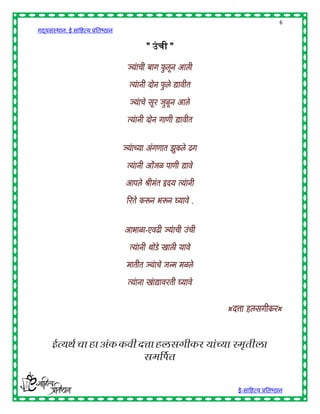 6
गद्यसंस्थान: ई साहित्य प्रतिष्ठान
" उंची "
ज्यांची बाग फुलून आली
त्यांनी दोन फुले द्यावीत
ज्यांचे सूर जुळून आले
त्यांनी दोन गाणी द्यावीत
ज्यांच्या अंगणात झुकले ढग
त्यांनी ओंजळ पाणी द्यावे
आपले श्रीमंत हृदय त्यांनी
रिते करून भरून घ्यावे .
आभाळा-एवढी ज्यांची उंची
त्यांनी थोडे खाली यावे
मातीत ज्यांचे जन्म मळले
त्यांना खांद्यावरती घ्यावे
¤दत्ता हलसगीकर¤
ईत्यर्थ चा हा अंक कवी दत्ता हलसगीकर यांच्या स्मृतीला
समर्पित
ई साहित्य
प्रतिष्ठान
ई-साहित्य प्रतिष्ठान